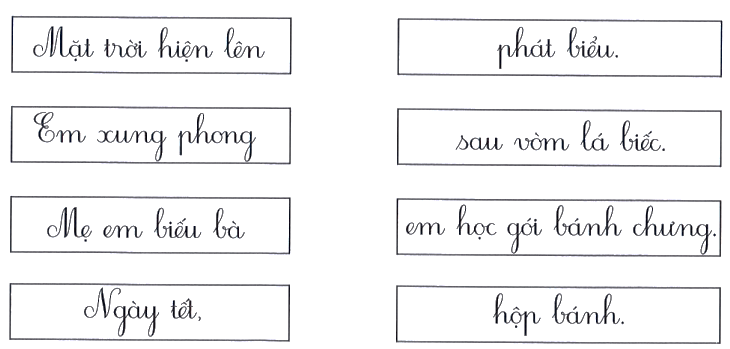 Mặt trời hiện lên
phát biểu.
Em xung phong
sau vòm lá biếc.
Mẹ em biếu bà
em học gói bánh chưng.
Ngày tết,
hộp bánh.